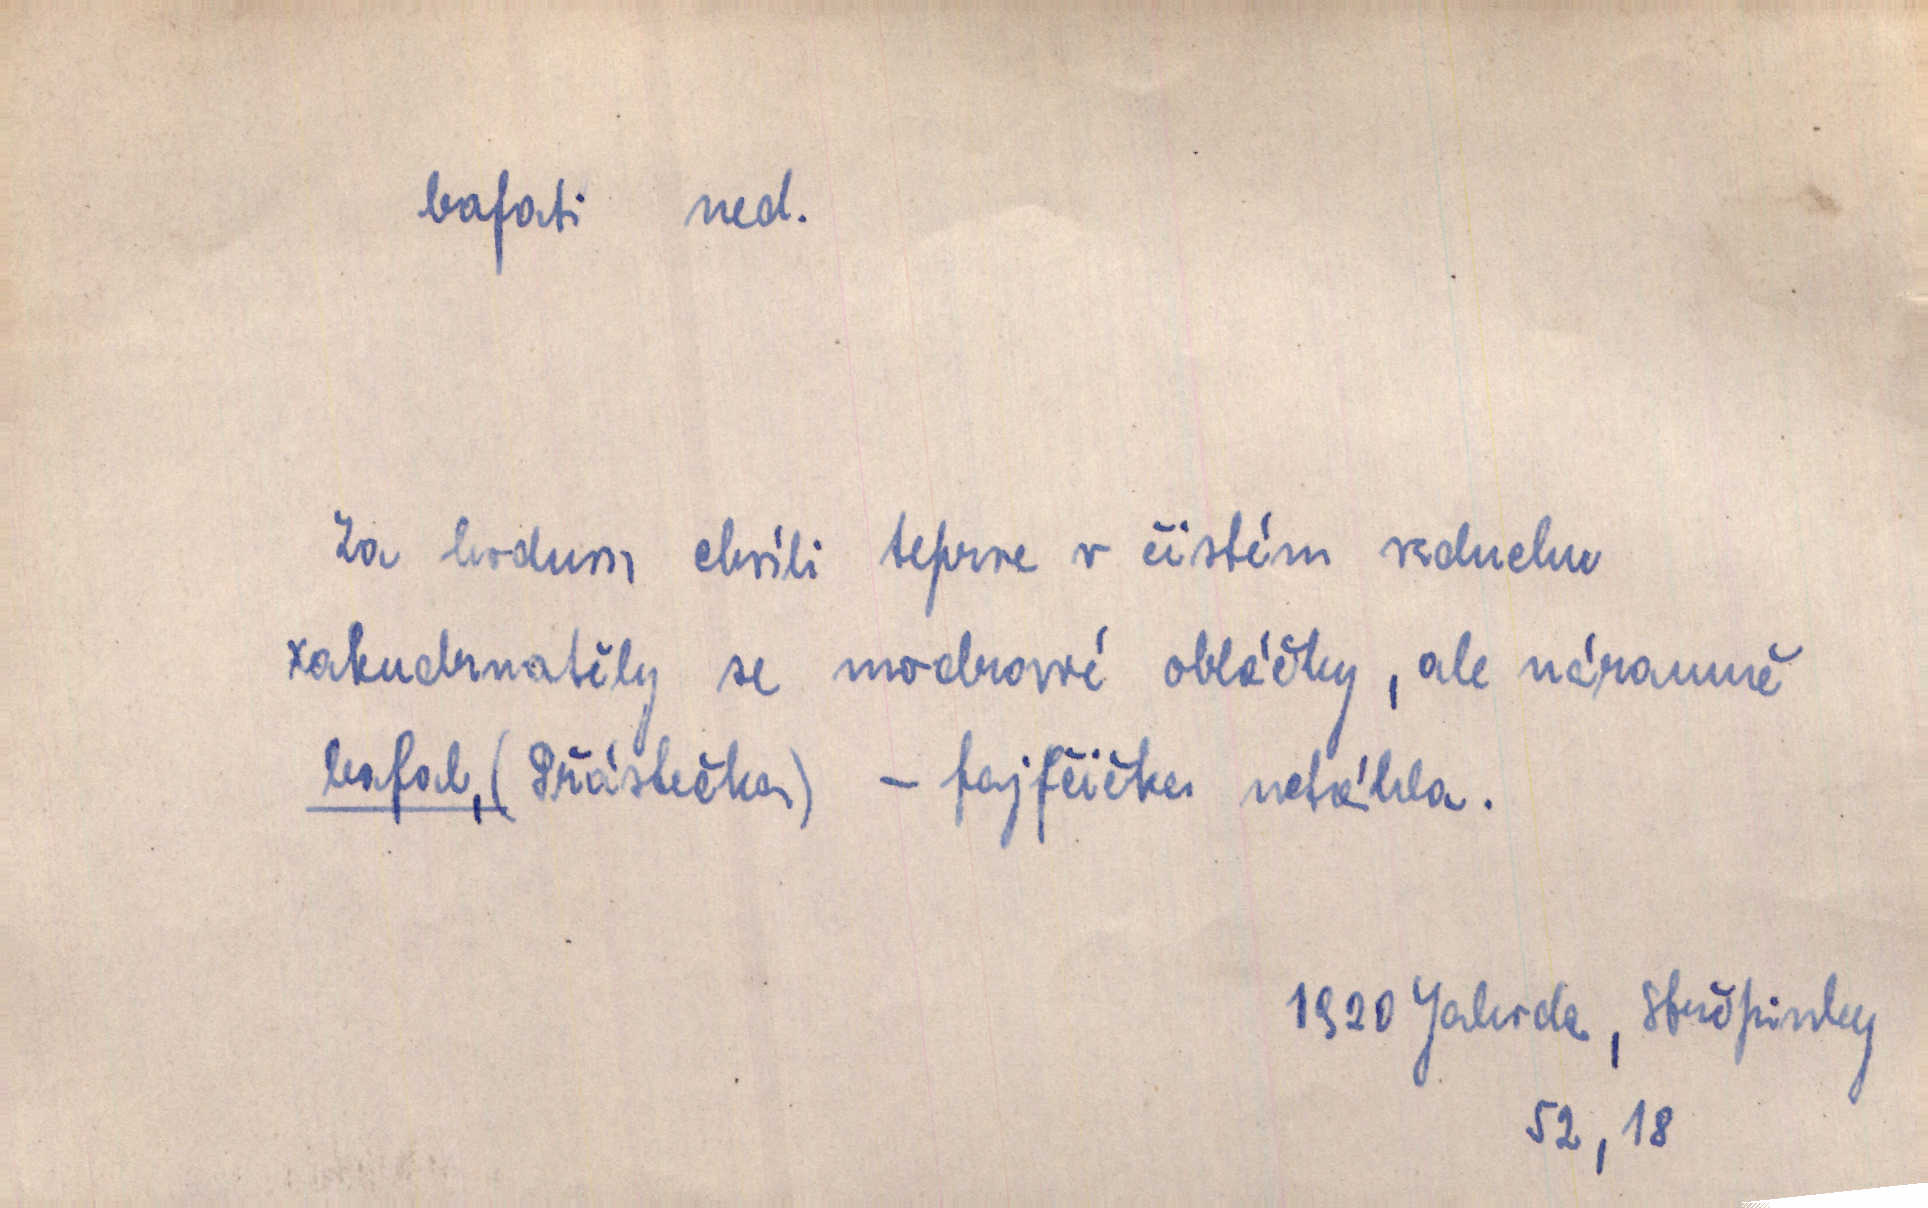 bafati ned.
Za hodnou chvíli teprve v čistém vzduchu
zakudrnatěly se modravé obláčky, ale náramně
bafal, (Přástečka) – fajfčička netáhla.
1920 Jahoda, Střípinky
52, 18